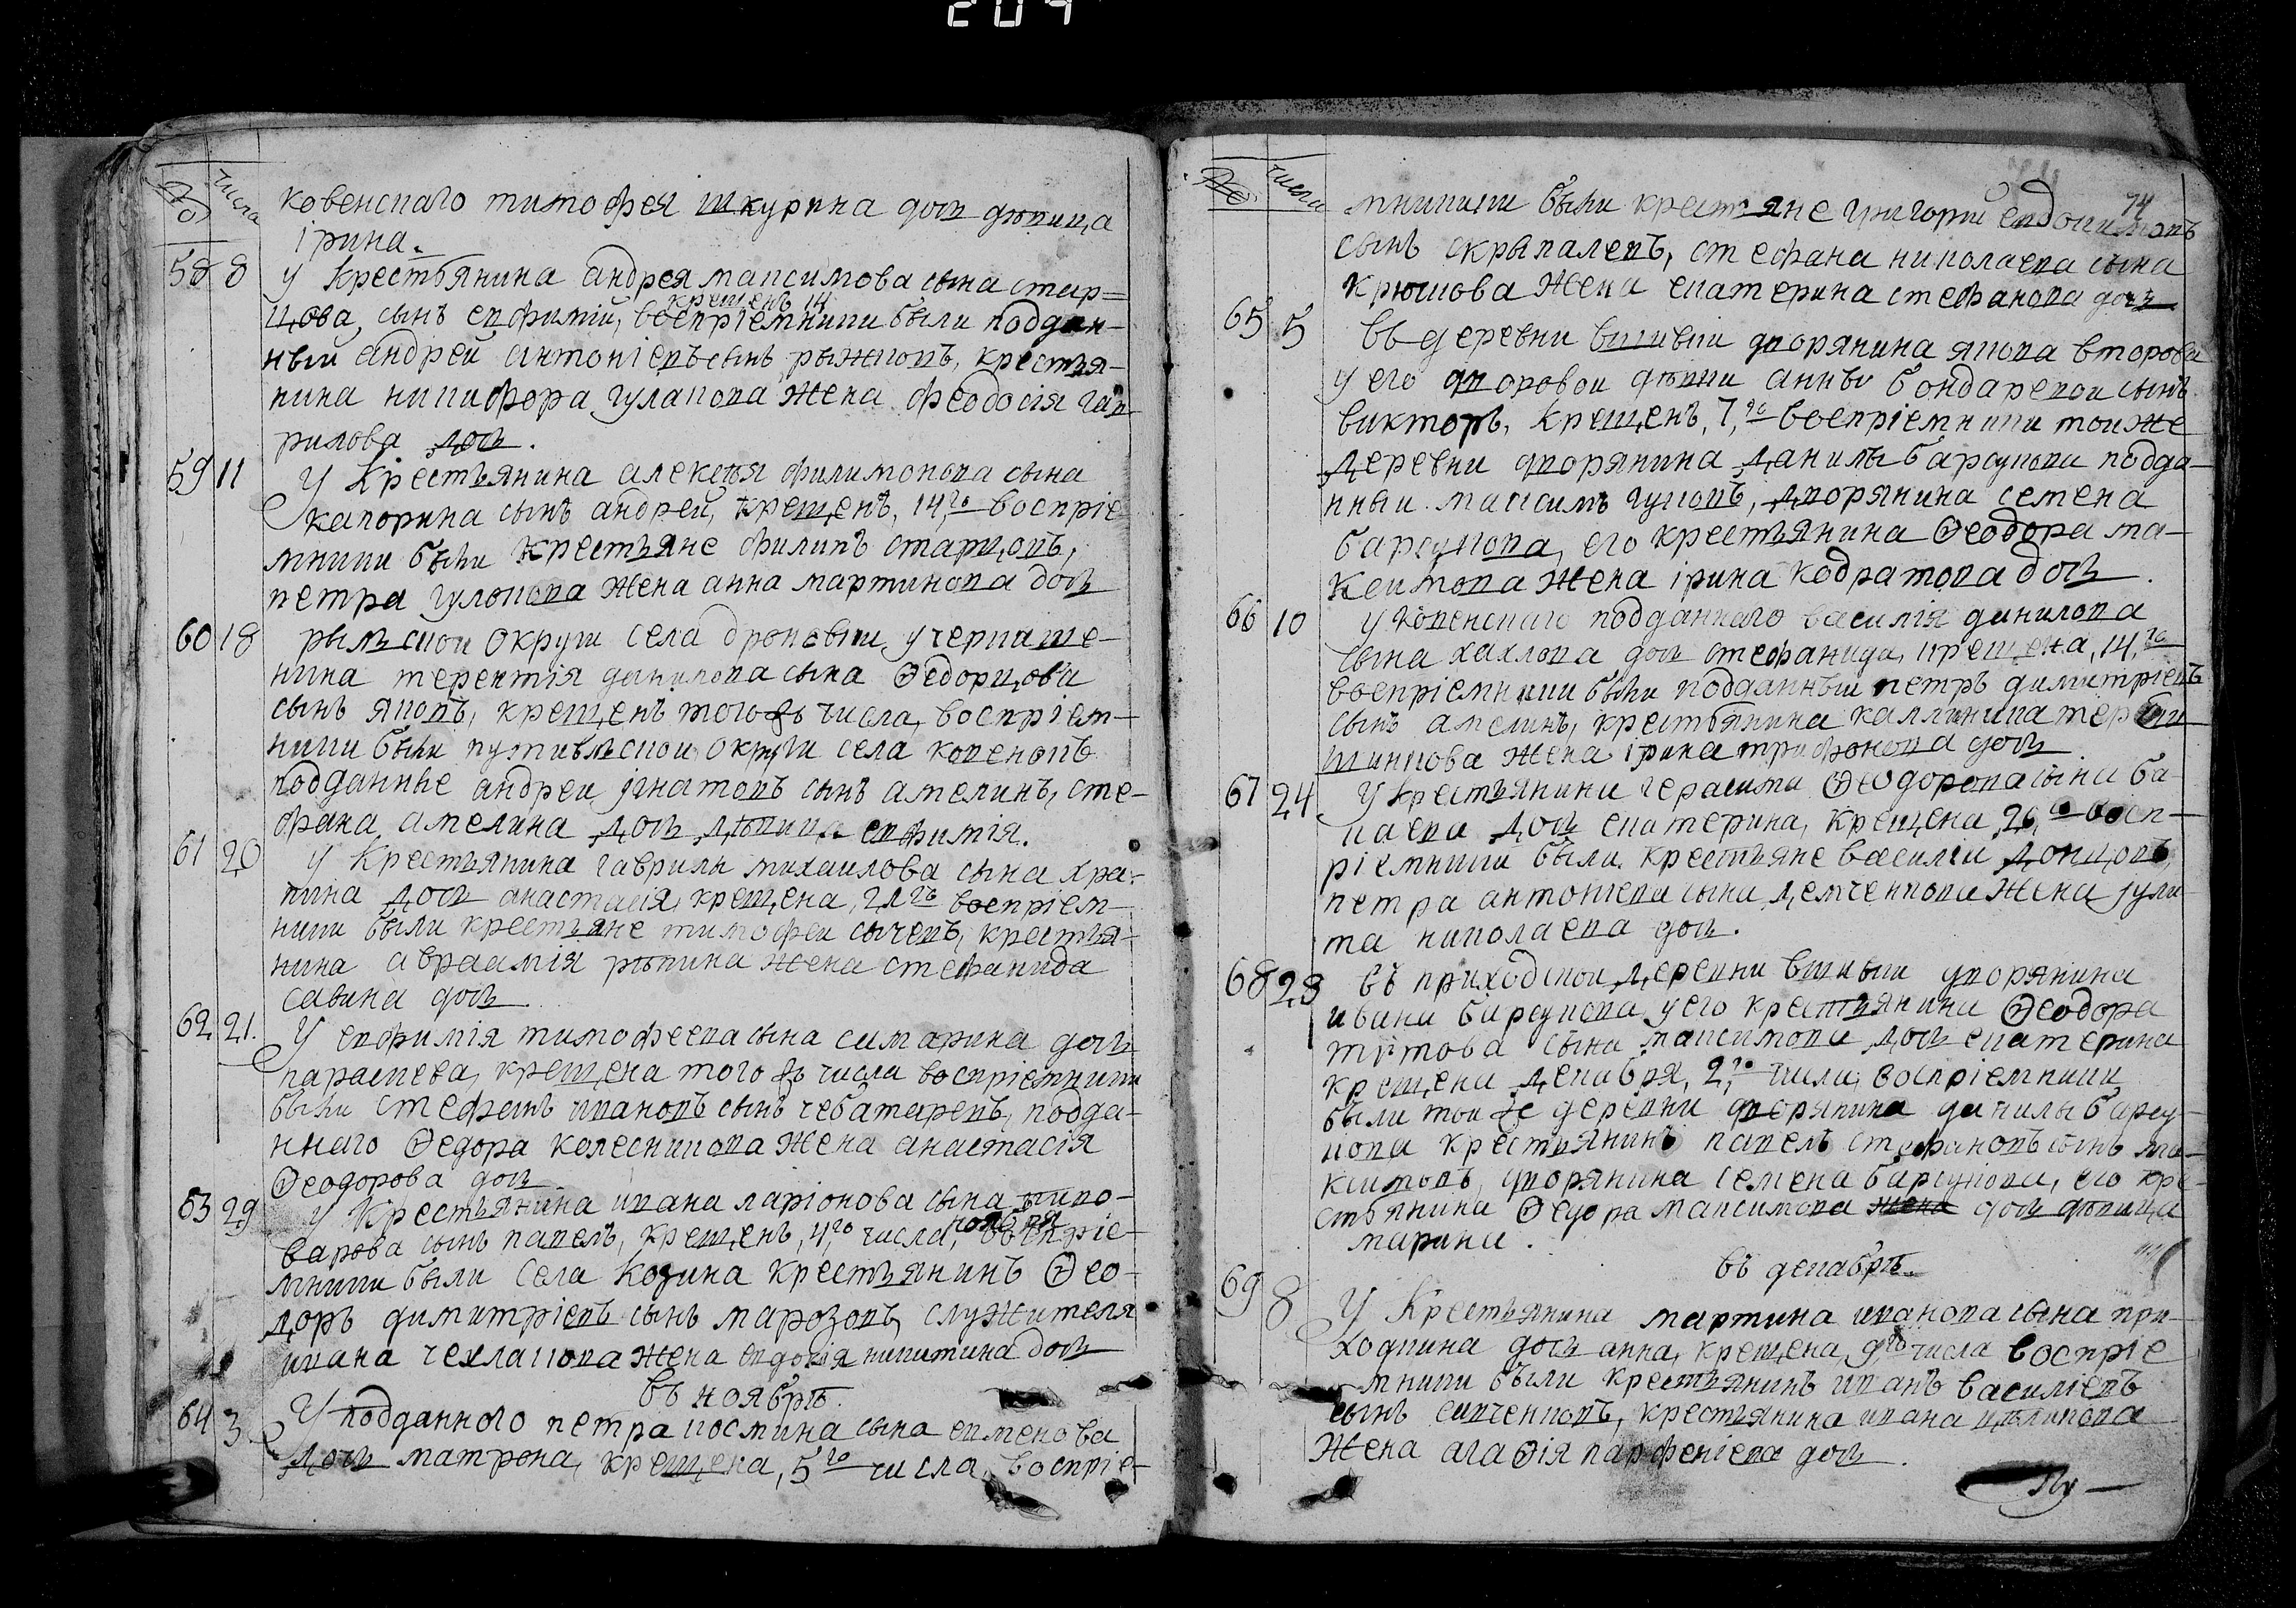 204
№ числа
ковенскаго тимофея шкурина дочь девица
ірина.
58 8 У крестьянина андрея максимова сына стар=
крещенъ 14
цова, сынъ евфимій, воспріемники были поддан-
ный андрей антоніевъ сынъ рыжковъ, крестья-
нина никифора гулакова жена феодосія гав-
рилова дочь.
59 11 У Крестьянина алексѣя филимонова сына
капорина сынъ андрей, крещенъ, 14,го воспріе
мники были крестьяне филипъ старцовъ,
петра гулокова жена анна мартинова дочь
60 18 рыльской округи села дроновки, у черкаше-
нина терентія данилова сына Ѳедорцова
сынъ яковъ, крещенъ того жъ числа, воспріем-
ники были путивльской округи села ковенокъ
подданные андрей игнатовъ сынъ амелинъ, сте-
фана амелина дочь дѣвица евфимія.
61 20 У Крестьянина гаврилы михаилова сына хра-
пина дочь анастасія, крещена, 21 го воспріем-
ники были крестьяне тимофей сычевъ, крестья-
нина авраамія рѣпина жена стефанида
савина дочь.
62 21. У евфимія тимофеева сына симарина дочь
параскева, крещена того жъ числа воспріемники
были стефанъ ивановъ сынъ чебатаревъ, подда-
ннаго Ѳедора колесникова жена анастасія
Ѳеодорова дочь
63 29 У Крестьянина ивана ларіонова сына пиво-
ноября
варова сынъ павелъ, крещенъ, 4,го числа, воспріе-
мники были села козина крестьянинъ Ѳео-
доръ димитріевъ сынъ марозовъ, служителя
ивана чехлакова жена евдокія никитина дочь
въ ноябрѣ.
64 3 У подданного петра космина сына семенова
дочь матрона, крещена, 5 го числа, воспріе-
№ числа
74
мники были крестьяне григорій евдокимовъ
сынъ скрыпалевъ, стефана николаева сына
крюкова жена екатерина стефанова дочь
65 5 въ деревни дворянина якова второва
у его дворовой дѣвки анны бондаревой сынъ
викторъ, крещенъ, 7,го воспріемники тоиже
деревни дворянина данилы барсукова подда-
нный максимъ гуковъ, дворянина семена
барсукова, его крестьянина Ѳеодора ма-
ксимова жена ірина кодратова дочь.
66 10 у ковенскаго подданнаго василія данилова
сына хахлова дочь стефанида, крещена, 14,го
воспріемники были подданный петръ димитріевъ
сынъ амелинъ, крестьянина каллиника
жена ірина трифонова дочь
67 24 У крестьянина герасима Ѳеодорова сына ба-
каева дочь екатерина, крещена, 26,го восп-
ріемники были крестьяне василій донцовъ,
петра антониева сына демченкова жена іули-
та николаева дочь.
68 28 въ приходской деревни дворянина
ивана барсукова, у его крестьянина Ѳеодора
титова сына максимова дочь екатерина
крещена декабря, 2,го числа, воспріемники
были той же деревни дворянина данилы барсу-
кова крестьянинъ павелъ стефановъ сынъ ма-
ксимовъ, дворянина семена барсукова, его кре-
стьянина Ѳедора максимова жена дочь дѣвица
марина.
въ декабрѣ.
69 8 У Крестьянина мартина иванова сына при-
ходкина дочь анна, крещена, 9,го числа воспріе
мники были крестьянинъ иванъ василіевъ
сынъ синченковъ, крестьянина ивана
жена агаѳія парфеніева дочь.